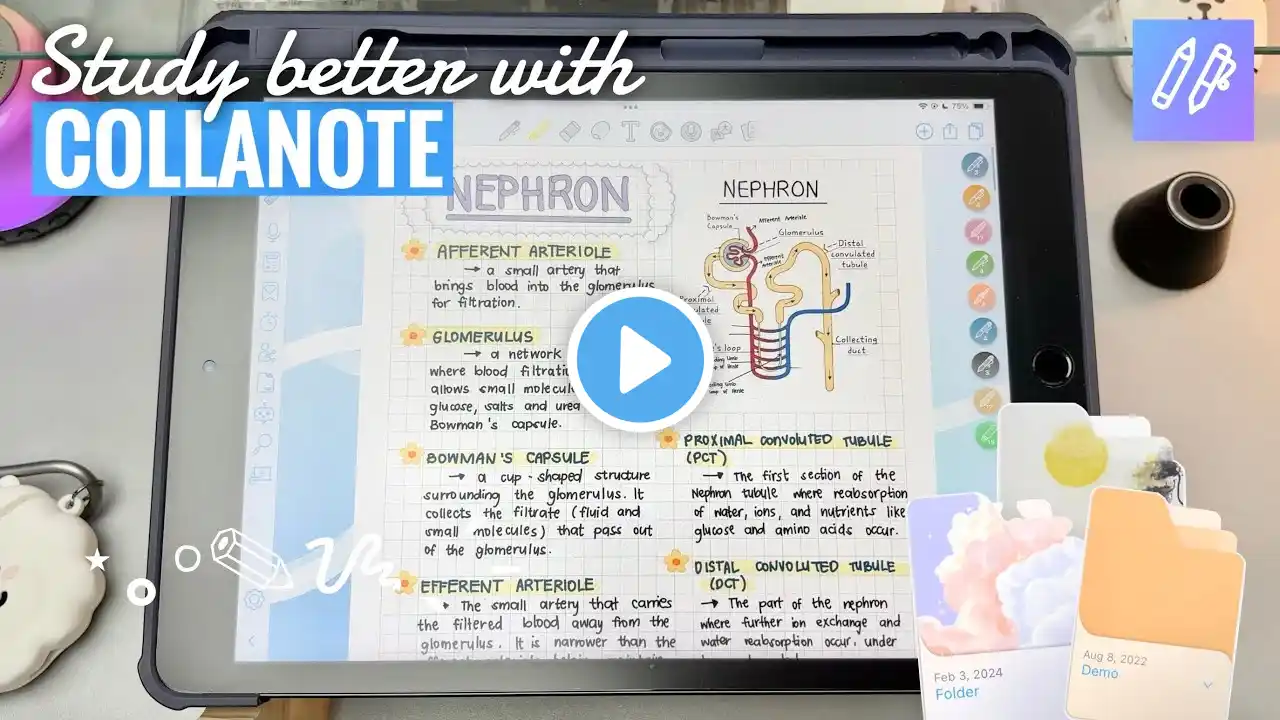 Study better with
COLLANOTE
75%
NEPHRON
AFFERENT ARTERIOLE
→ a small artery that
brings blood into the glomerulus
for filtration.
GLOMERULUS
→ a network
where blood
allows small
glucose, salts and urea
Bowman's capsule.
BOWMAN'S CAPSULE
→ a cup-shaped structure
surrounding the glomerulus. It
collects the filtrate (fluid and
small molecules) that pass out
of the glomerulus.
EFFERENT ARTERIOLE
→ The small artery that carries
the filtered blood away from the
glomerulus. It is narrower than the
NEPHRON
Bowman's
Capsule
Afferent Arteriole
Glomerulus
Efferent
Arteriole
Distal
convoluted
tubule
Proximal
loop
Collecting
duct
PROXIMAL CONVOLUTED TUBULE
(PCT)
→ The first section of the
Nephron tubule where reabsorption
of water, ions, and nutrients like
glucose and amino acids occur.
DISTAL CONVOLUTED TUBULE
(DCT)
→ The part of the nephron
where further ion exchange and
water reabsorption occur, under
Feb 3, 2024
Folder
Aug 8, 2022
Demo